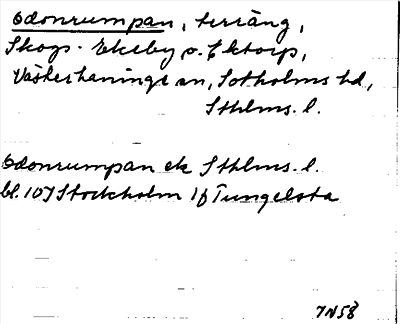 Odonrumpan, terräng,
Skogs-Ekeby o. Ektorp,
Västerhaninge sn, Sotholms hd,
Sthlms. l.
Odonrumpan ek Sthlms. l.
bl. 107 Stockholm Tungelsta
7N58